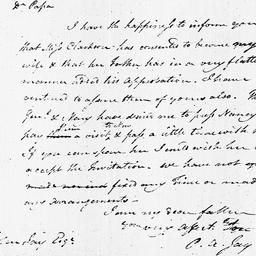 Dr Papa
I have the happiness to inform you
that Miss Clarkson has consented to become my
wife & that her Father has in a very flatte
manner added his approbation. I have
ventured to assure them of yours also. The
Genl. & Mary have desired me to press Nancy
pay them a visit, & pass a little time with
If you can spare her I wish with her
accept the Invitation. We have not
fixed any Time or mad
any arrangements.
I am my dear father
your very affect. Son
P. A. Jay
Jay Esqr.